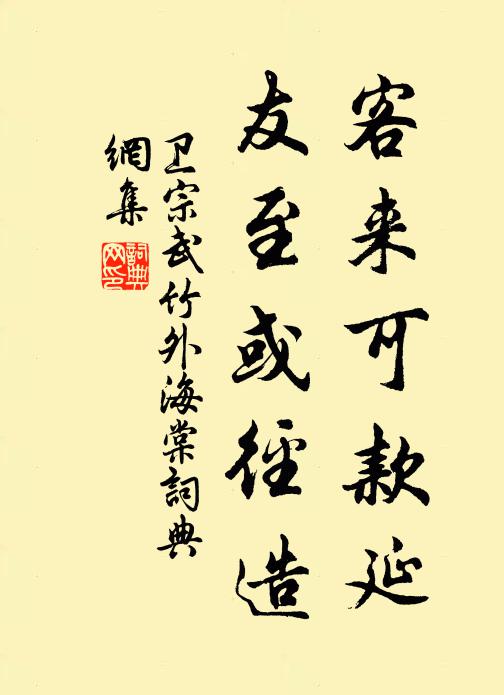 客来可款延
友至或径造
卫宗武竹外海棠詞典
網集
詞典
网印